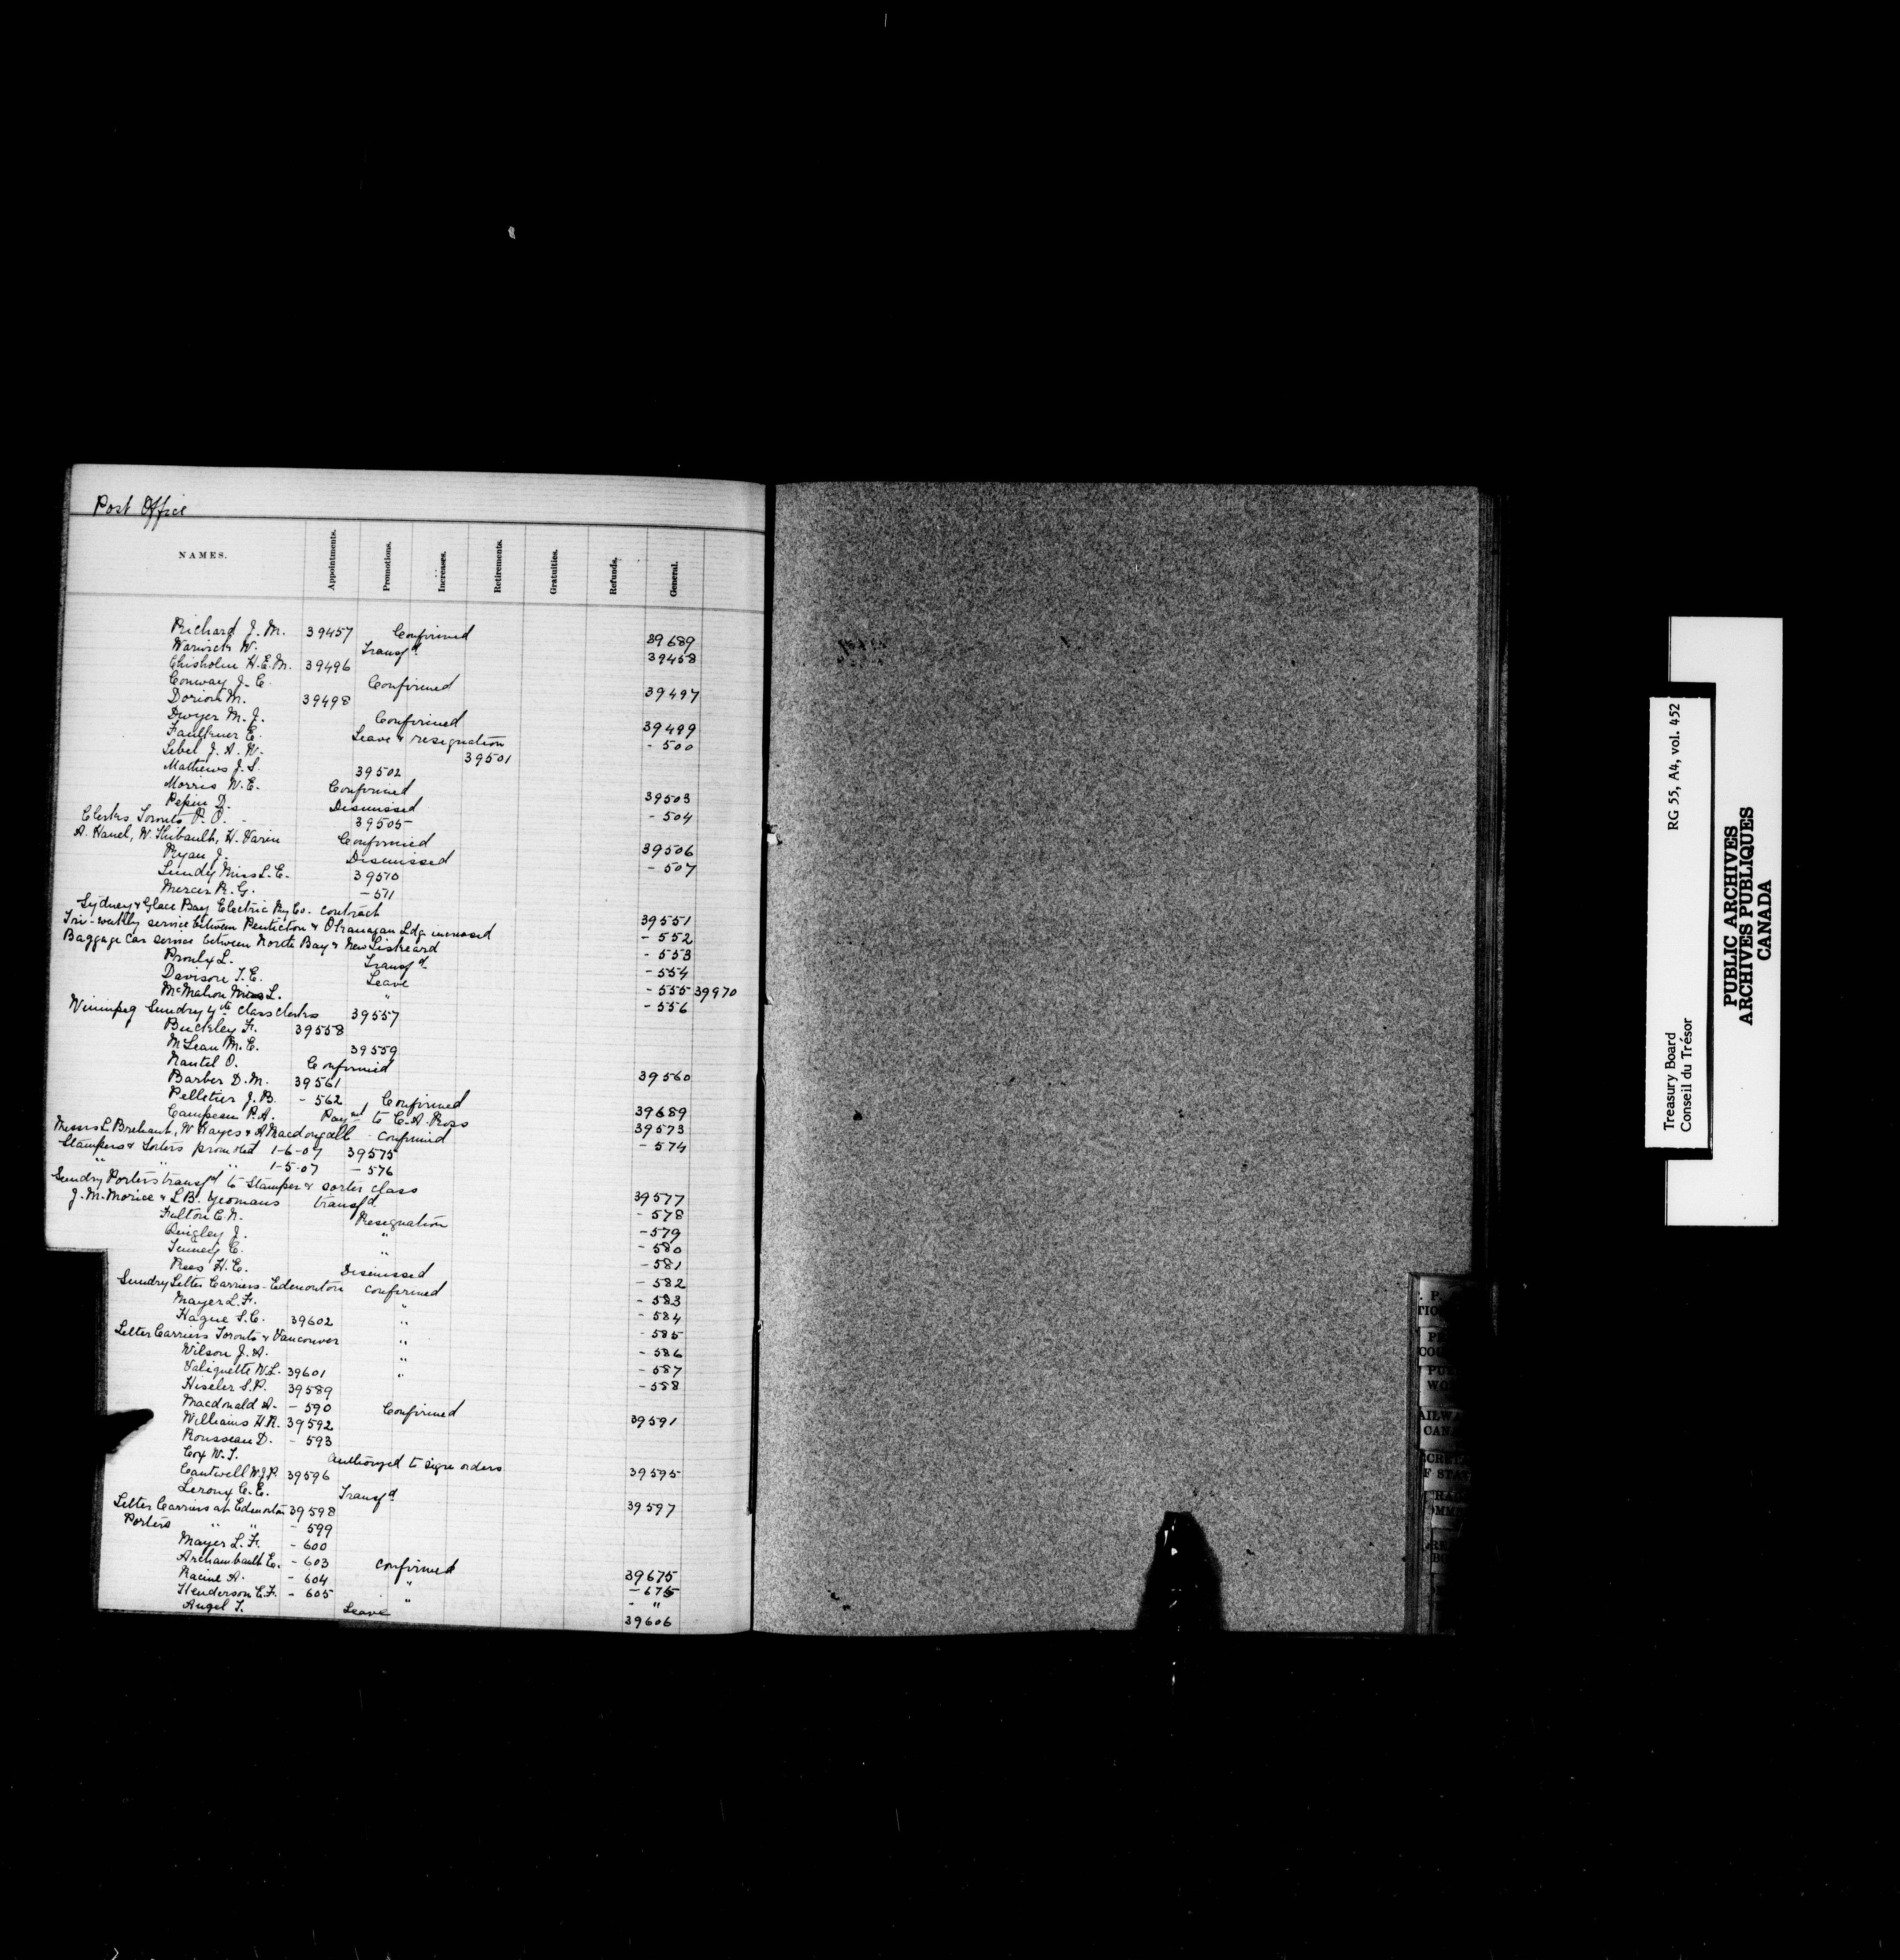 Post Office
NAMES. Appointments. Promotions. Increases. Retirements. Gratuities. Refunds. General.
Richard J. M. 39457 Confirmed 39689
Warwick W. Transfd. 39458
Chisholm H. E. M. 39496
Conway J. C. Confirmed 39497
Dorion M. 39498
Dwyer M. J. Confirmed 39499
Faulkner E. Leave & resignation - 500
Lebel J. A. W. 39501
Mathews J. S. 39502
Morris W. E. Confirmed 39503
Pepin D. Dismissed - 504
Clerks, Toronto P. O. - 39505
A. Hamel, W. Thibault, H. Varin Confirmed 39506
Ryan J. Dismissed - 507
Lundy Miss L. E. 39510
Mercer R. G. - 511
Sydney & Glace Bay Electric Ry Co. contract 39551
Tri-weekly service between Penticton & Okanagan Ldg increased - 552
Baggage Car service between North Bay & New Liskeard - 553
Proulx L. Transfd. - 554
Davison T. E. Leave - 555 39970
McMahon Miss L. " - 556
Winnipeg Sundry 4th Class Clerks 39557
Buckley F. 39558
McLean M. E. 39559
Nantel O. Confirmed 39560
Barber D. M. 39561
Pelletier J. B. - 562 Confirmed 39689
Campeau P. A. Paymt to C. A. Ross 39573
Messrs L. Brehaut, W. Hayes & A Macdougall - confirmed - 574
Stampers & Sorters promoted 1-6-07 39575
" " " 1-5-07 - 576
Sundry Porters transfd to Stamper & sorter class 39577
J. M. Morice & L. B. Yeomans transfd. - 578
Fulton C. N. Resignation - 579
Quigley J. " - 580
Tenney C. " - 581
Rees H. E. Dismissed - 582
Sundry Letter Carriers - Edmonton confirmed - 583
Mayer L. F. " - 584
Hague S. C. 39602 - 585
Letter Carriers Toronto & Vancouver " - 586
Wilson J. A. " - 587
Valiquette W. L. 39601 " - 588
Hiseler S. P. 39589
Macdonald A. - 590 Confirmed 39591
Williams H. R. 39592
Rousseau D. - 593
Cox W. T. authorized to sign orders 39595
Cantwell W. J. P. 39596
Leroux C. E. Transfd 39597
Letter Carriers at Edmonton 39598
Porters " " - 599
Mayer L. F. - 600
Archambault E. - 603 confirmed 39675
Racine A. - 604 " - 675
Henderson E. F. - 605 " - "
Angel T. Leave 39606
Treasury Board RG 55, A4, vol. 452
Conseil du Trésor
PUBLIC ARCHIVES
ARCHIVES PUBLIQUES
CANADA